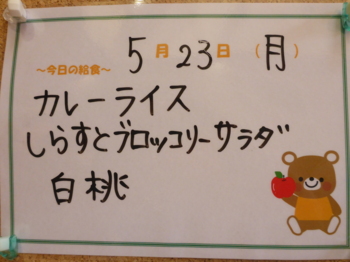 5月23日(月)
～今日の給食～
カレーライス
しらすとブロッコリーサラダ
白桃